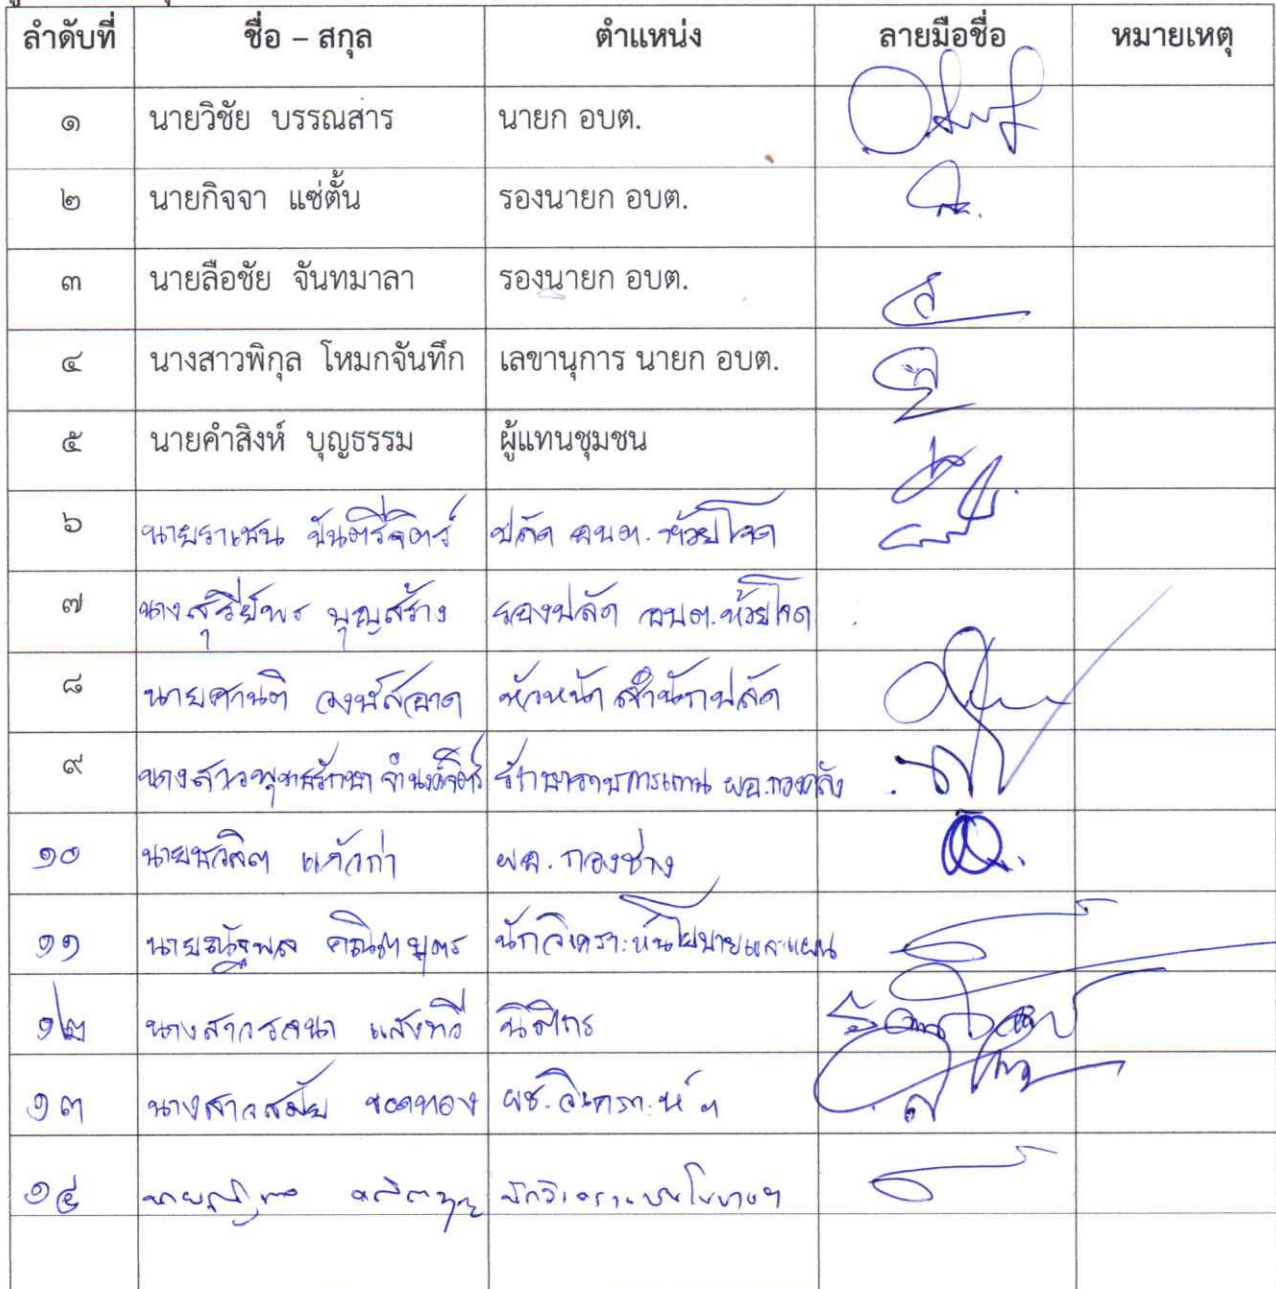 ลำดับที่ ชื่อ – สกุล ตำแหน่ง ลายมือชื่อ หมายเหตุ
๑ นายวิชัย บรรณสาร นายก อบต.
๒ นายกิจจา แซ่ตั้น รองนายก อบต.
๓ นายลือชัย จันทมาลา รองนายก อบต.
๔ นางสาวพิกุล โหมกจันทึก เลขานุการ นายก อบต.
๕ นายคำสิงห์ บุญธรรม ผู้แทนชุมชน
๖ นายราเชน ขันตรีจิตร์ ปลัด อบต.ห้วยโจด
๗ นางสุรีย์พร บุญสร้าง รองปลัด อบต.ห้วยโจด
๘ นายศานติ วงษ์สอาด หัวหน้าสำนักปลัด
๙ นางสาวพุทธรักษา จำนงค์จิตร์ รักษาราชการแทน ผอ.กองคลัง
๑๐ นายชวลิต แก้วก่า ผอ.กองช่าง
๑๑ นายณัฐพล คณิตบุตร นักวิเคราะห์นโยบายและแผน
๑๒ นางสาวรจนา แสงทวี นิติกร
๑๓ นางสาวสมัย ยอดทอง ผช.วิเคราะห์ ฯ
๑๔ นักวิเคราะห์นโยบายฯ